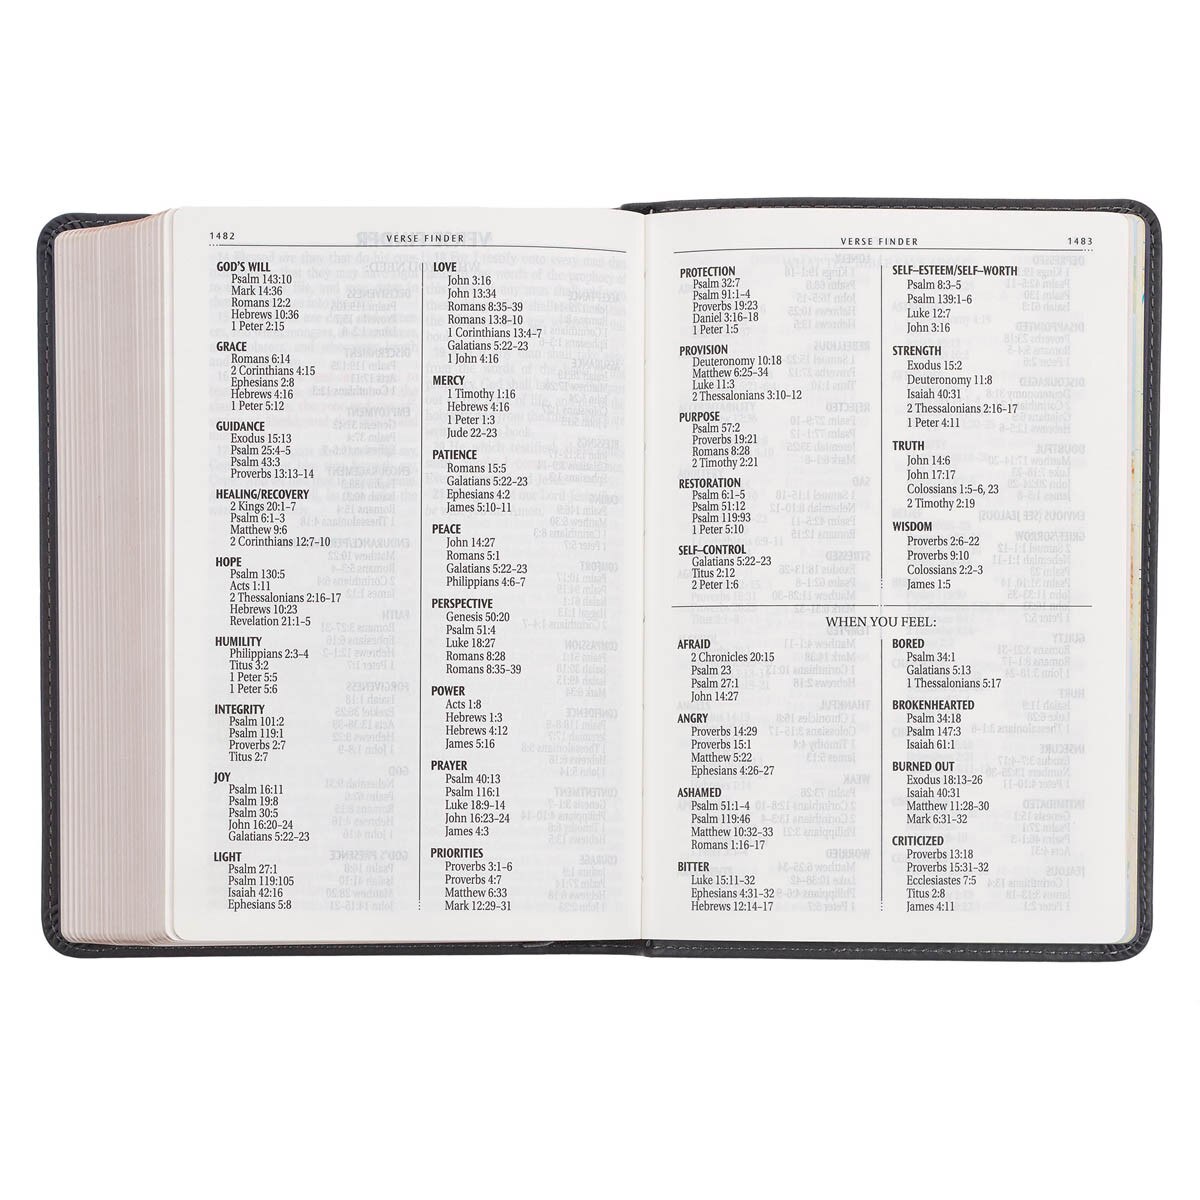 1482
VERSE FINDER
GOD'S WILL
Psalm 143:10
Mark 14:36
Romans 12:2
Hebrews 10:36
1 Peter 2:15
GRACE
Romans 6:14
2 Corinthians 4:15
Ephesians 2:8
Hebrews 4:16
1 Peter 5:12
GUIDANCE
Exodus 15:13
Psalm 25:4–5
Psalm 43:3
Proverbs 13:13–14
HEALING/RECOVERY
2 Kings 20:1–7
Psalm 6:1–3
Matthew 9:6
2 Corinthians 12:7–10
HOPE
Psalm 130:5
Acts 1:11
2 Thessalonians 2:16–17
Hebrews 10:23
Revelation 21:1–5
HUMILITY
Philippians 2:3–4
Titus 3:2
1 Peter 5:5
1 Peter 5:6
INTEGRITY
Psalm 101:2
Psalm 119:1
Proverbs 2:7
Titus 2:7
JOY
Psalm 16:11
Psalm 19:8
Psalm 30:5
John 16:20–24
Galatians 5:22–23
LIGHT
Psalm 27:1
Psalm 119:105
Isaiah 42:16
Ephesians 5:8
LOVE
John 3:16
John 13:34
Romans 8:35–39
Romans 13:8–10
1 Corinthians 13:4–7
Galatians 5:22–23
1 John 4:16
MERCY
1 Timothy 1:16
Hebrews 4:16
1 Peter 1:3
Jude 22–23
PATIENCE
Romans 15:5
Galatians 5:22–23
Ephesians 4:2
James 5:10–11
PEACE
John 14:27
Romans 5:1
Galatians 5:22–23
Philippians 4:6–7
PERSPECTIVE
Genesis 50:20
Psalm 51:4
Luke 18:27
Romans 8:28
Romans 8:35–39
POWER
Acts 1:8
Hebrews 1:3
Hebrews 4:12
James 5:16
PRAYER
Psalm 40:13
Psalm 116:1
Luke 18:9–14
John 16:23–24
James 4:3
PRIORITIES
Proverbs 3:1–6
Proverbs 4:7
Matthew 6:33
Mark 12:29–31
VERSE FINDER
1483
PROTECTION
Psalm 32:7
Psalm 91:1–4
Proverbs 19:23
Daniel 3:16–18
1 Peter 1:5
PROVISION
Deuteronomy 10:18
Matthew 6:25–34
Luke 11:3
2 Thessalonians 3:10–12
PURPOSE
Psalm 57:2
Proverbs 19:21
Romans 8:28
2 Timothy 2:21
RESTORATION
Psalm 6:1–5
Psalm 51:12
Psalm 119:93
1 Peter 5:10
SELF–CONTROL
Galatians 5:22–23
Titus 2:12
2 Peter 1:6
SELF–ESTEEM/SELF–WORTH
Psalm 8:3–5
Psalm 139:1–6
Luke 12:7
John 3:16
STRENGTH
Exodus 15:2
Deuteronomy 11:8
Isaiah 40:31
2 Thessalonians 2:16–17
1 Peter 4:11
TRUTH
John 14:6
John 17:17
Colossians 1:5–6, 23
2 Timothy 2:19
WISDOM
Proverbs 2:6–22
Proverbs 9:10
Colossians 2:2–3
James 1:5
WHEN YOU FEEL:
AFRAID
2 Chronicles 20:15
Psalm 23
Psalm 27:1
John 14:27
ANGRY
Proverbs 14:29
Proverbs 15:1
Matthew 5:22
Ephesians 4:26–27
ASHAMED
Psalm 51:1–4
Psalm 119:46
Matthew 10:32–33
Romans 1:16–17
BITTER
Luke 15:11–32
Ephesians 4:31–32
Hebrews 12:14–17
BORED
Psalm 34:1
Galatians 5:13
1 Thessalonians 5:17
BROKENHEARTED
Psalm 34:18
Psalm 147:3
Isaiah 61:1
BURNED OUT
Exodus 18:13–26
Isaiah 40:31
Matthew 11:28–30
Mark 6:31–32
CRITICIZED
Proverbs 13:18
Proverbs 15:31–32
Ecclesiastes 7:5
Titus 2:8
James 4:11